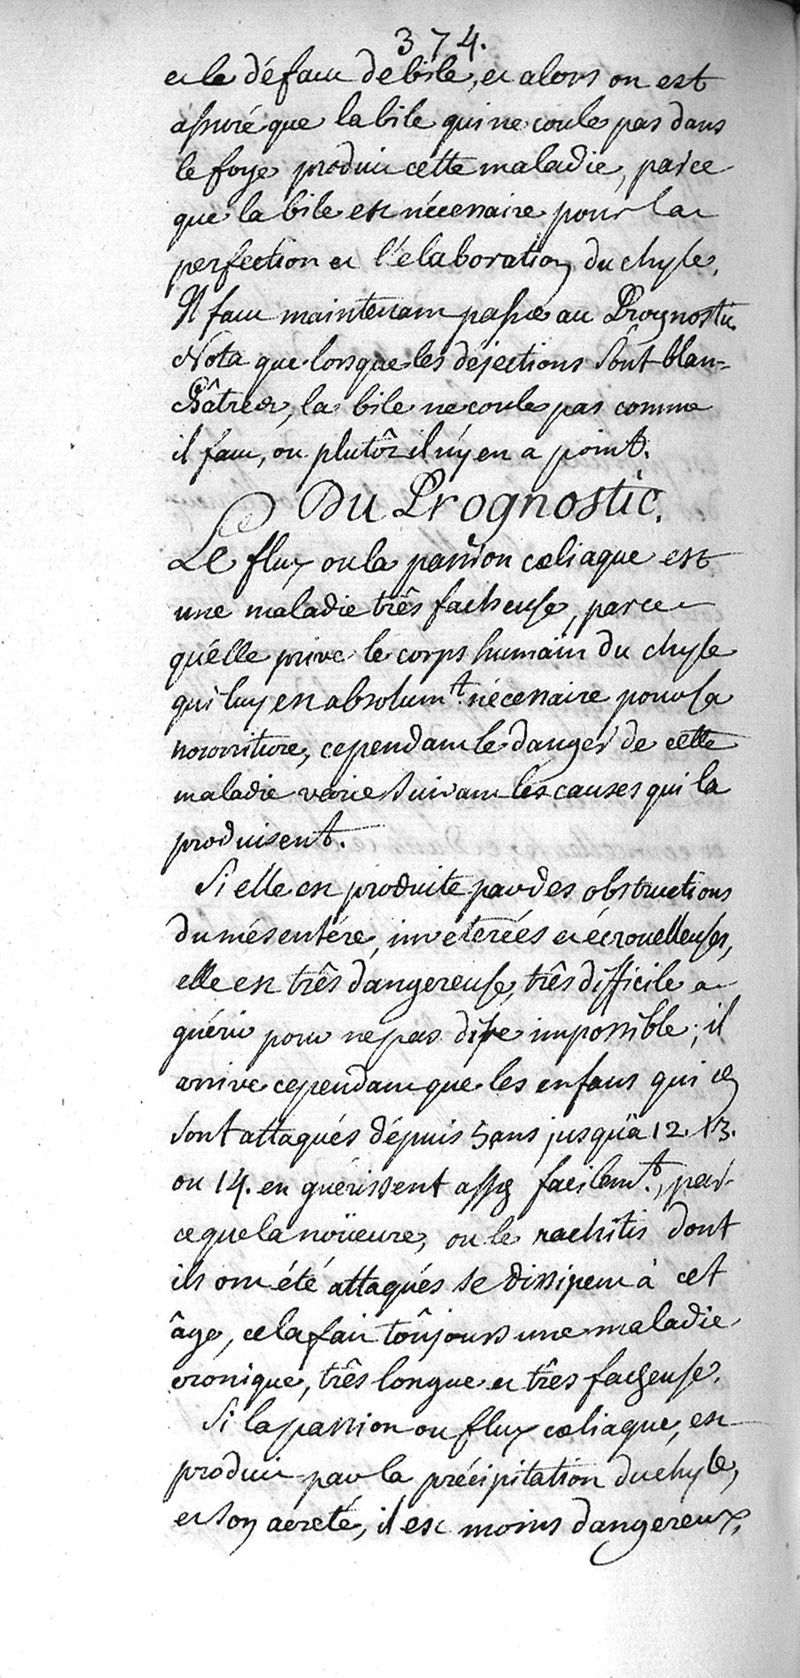 374.
et le défaut de bile, et alors on est
assuré que la bile qui ne coule pas dans
le foye produit cette maladie, parce
que la bile est nécessaire pour la
perfection et l'élaboration du chyle.
Il faut maintenant passer au Prognostic.
Nota que lorsque les déjections sont blan=
châtres, la bile ne coule pas comme
il faut, ou plutôt il n'y en a point.
Du Prognostic.
Le flux ou la passion cœliaque est
une maladie três facheuse, parce
qu'elle prive le corps humain du chyle
qui luy est absolumt. nécessaire pour sa
nourriture, cependant le danger de cette
maladie varie suivant les causes qui la
produisent.
Si elle est produite par des obstructions
du mésentére, inveterées et écrouelleuses,
elle est três dangereuse, três difficile a
guérir pour ne pas dire impossible; il
arrive cependant que les enfans qui en
sont attaqués dépuis 5 ans jusqu'a 12. 13.
ou 14. en guérissent assez facilemt., par-
ceque la noüeure, ou le rachitis dont
ils ont été attaqués se dissipent à cet
âge, cela fait toûjours une maladie
cronique, três longue et três facheuse.
Si la passion ou flux cœliaque, est
produit par la précipitation du chyle,
et son acreté, il est moins dangereux,